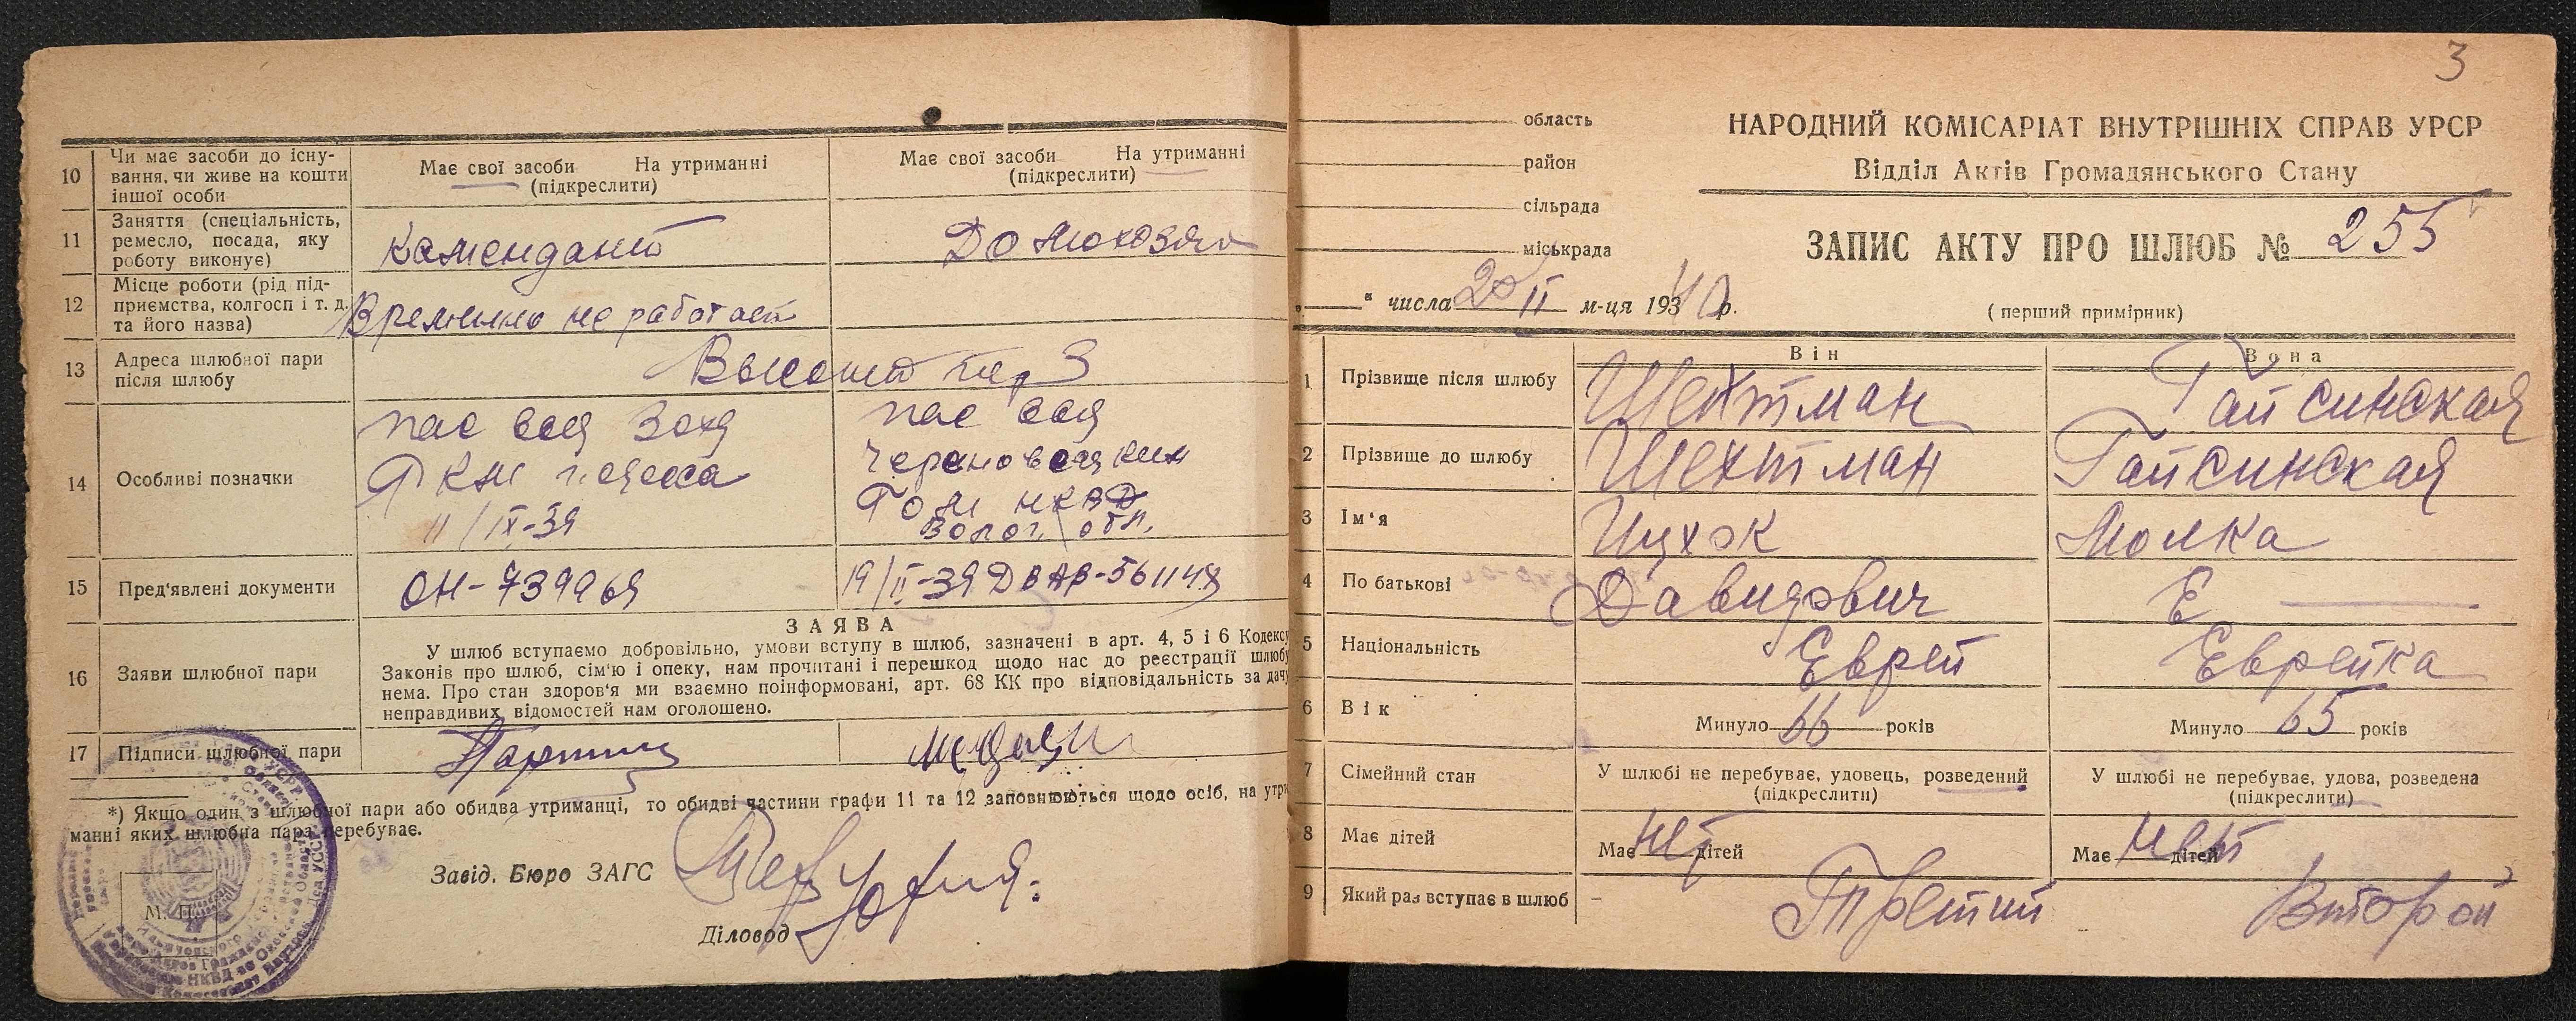 10 Чи має засоби до існу-
вання, чи живе на кошти
іншої особи
Має свої засоби На утриманні
(підкреслити)
Має свої засоби На утриманні
(підкреслити)
11 Заняття (спеціальність,
ремесло, посада, яку
роботу виконує)
Комендант
Домохозяй
12 Місце роботи (рід під-
приємства, колгосп і т. д.
та його назва)
Временно не работает
13 Адреса шлюбної пари
після шлюбу
пер 3
14 Особливі позначки
пас
РКМ г. Одесса
11/IX-39
пас
НКВД
Волог. обл.
15 Пред'явлені документи
ОН-739969
19/II-39
16 Заяви шлюбної пари
ЗАЯВА
У шлюб вступаємо добровільно, умови вступу в шлюб, зазначені в арт. 4, 5 і 6 Кодексу
Законів про шлюб, сім'ю і опеку, нам прочитані і перешкод щодо нас до реєстрації шлюбу
нема. Про стан здоров'я ми взаємно поінформовані, арт. 68 КК про відповідальність за дачу
неправдивих відомостей нам оголошено.
17 Підписи шлюбної пари
*) Якщо один з шлюбної пари або обидва утриманці, то обидві частини графи 11 та 12 заповнюються щодо осіб, на утри
манні яких шлюбна пара перебуває.
Завід. Бюро ЗАГС
Діловод
М. П.
3
область
район
сільрада
міськрада
„ “ числа 20 II м-ця 1940 р.
НАРОДНИЙ КОМІСАРІАТ ВНУТРІШНІХ СПРАВ УРСР
Відділ Актів Громадянського Стану
ЗАПИС АКТУ ПРО ШЛЮБ № 255
(перший примірник)
Він
Вона
1 Прізвище після шлюбу Шехтман Гайсинская
2 Прізвище до шлюбу Шехтман Гайсинская
3 Ім'я Ицхок Молка
4 По батькові Давидович Е
5 Національність Еврей Еврейка
6 Вік Минуло 66 років Минуло 65 років
7 Сімейний стан
У шлюбі не перебуває, удовець, розведений
(підкреслити)
У шлюбі не перебуває, удова, розведена
(підкреслити)
8 Має дітей Має нет дітей Має нет дітей
9 Який раз вступає в шлюб Третий Второй